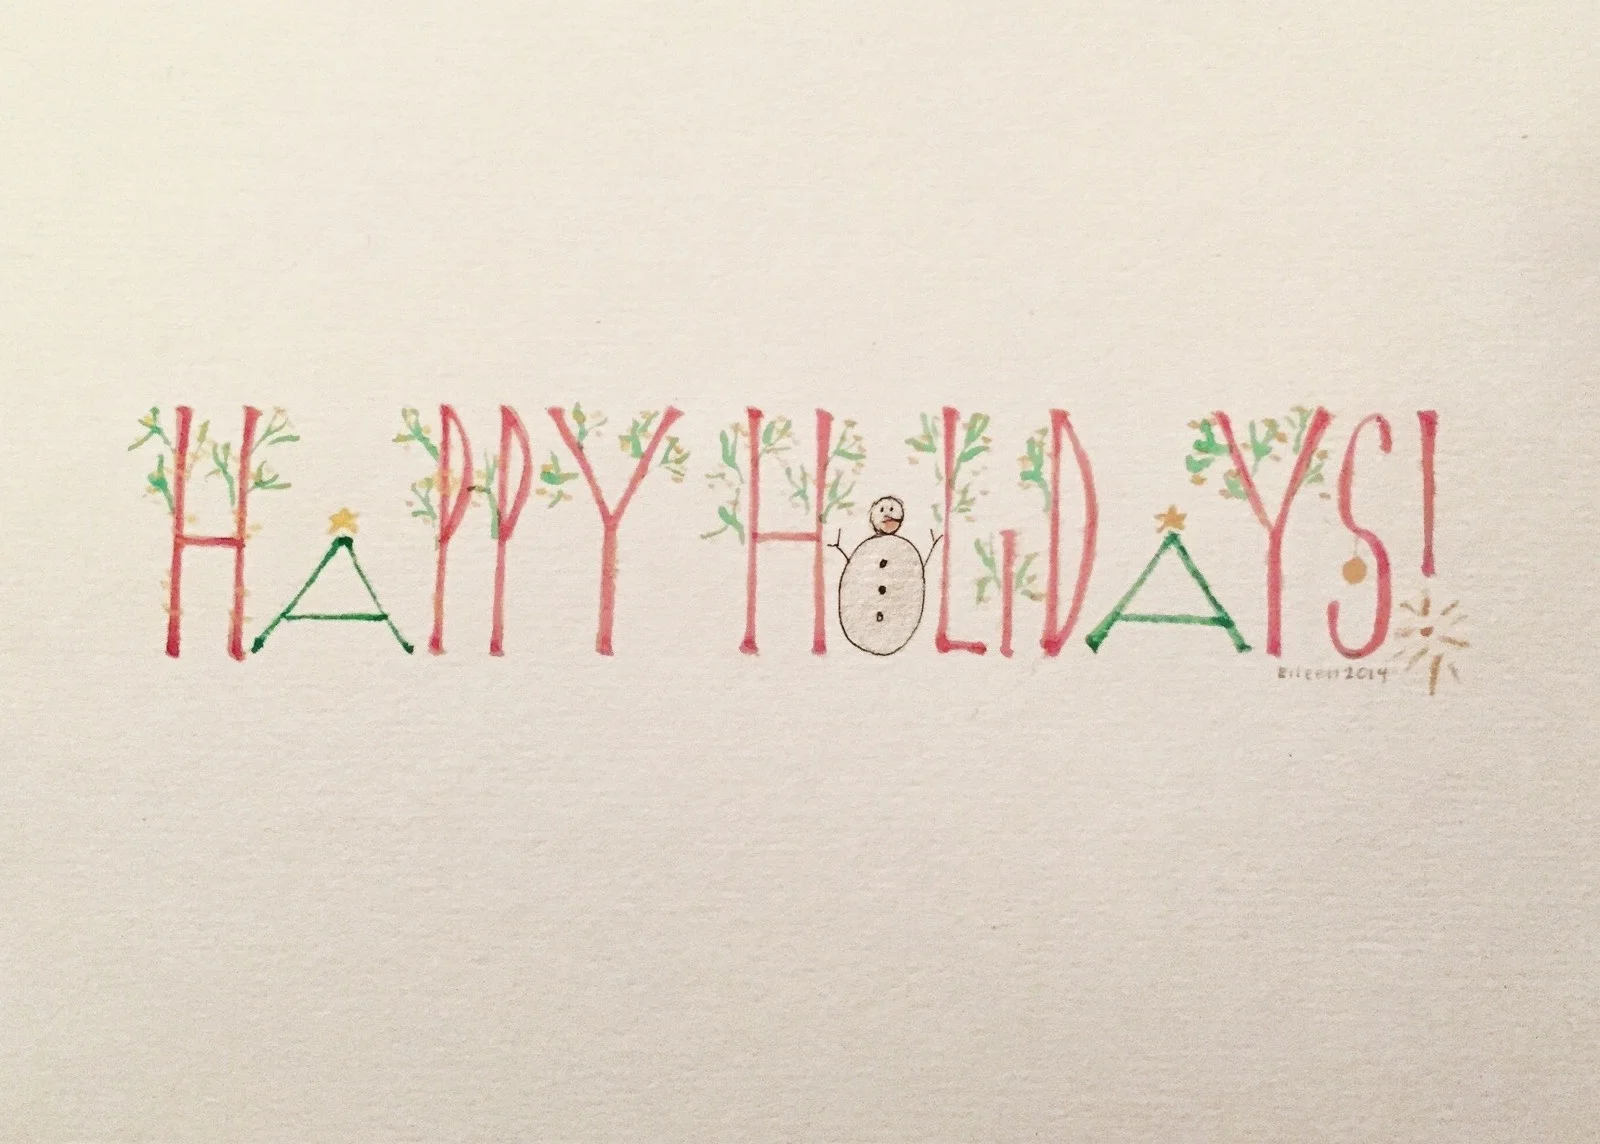 HAPPY HOLIDAYS!
Eileen 2014